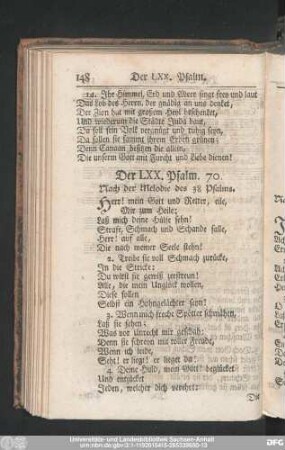 148 Der LXX. Psalm.
12. Ihr Himmel, Erd und Meer singt frey und laut
Das Lob des Herrn, der gnädig an uns denket,
Der Zion hat mit großem Heyl beschenket,
Und wiederum die Städte Juda baut,
Da soll sein Volk vergnügt und ruhig seyn,
Da sollen sie sammt ihren Erben grünen;
Denn Canaan besitzen die allein,
Die unserm Gott mit Furcht und Liebe dienen!
Der LXX. Psalm. 70.
Nach der Melodie des 38 Psalms.
Herr! mein Gott und Retter, eile,
Mir zum Heile;
Laß mich deine Hülfe sehn!
Strafe, Schmach und Schande falle,
Herr! auf alle,
Die nach meiner Seele stehn!
2. Treibe sie voll Schmach zurücke,
In die Stricke;
Du wirst sie gewiß zerstreun!
Alle, die mein Unglück wollen,
Diese sollen
Selbst ein Hohngelächter seyn!
3. Wenn mich freche Spötter schmähten,
Laß sie sehen:
Was vor Unrecht mir geschah;
Denn sie schreien mit voller Freude,
Wenn ich leide,
Seht! er liegt! er lieget da!
4. Deine Huld, mein Gott! beglücket
Und entzücket
Jeden, welcher dich verehrt:
Die
Universitäts- und Landesbibliothek Sachsen-Anhalt
DFG